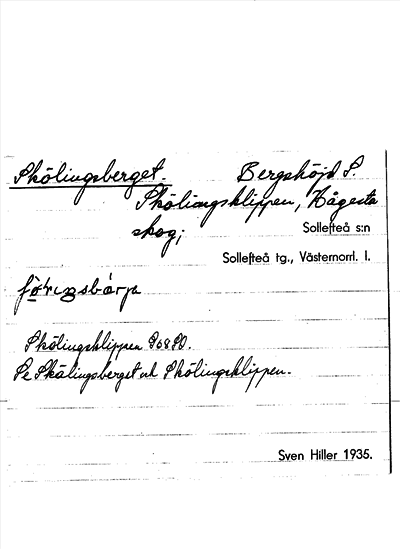 Skölingsberget. Bergshöjd S.
Skölingsklippen, Hågesta
skog; Sollefteå s:n
Sollefteå tg., Västernorrl. l.
Skölingsklippen
Se Skälingsberget och Skölingsklippen.
Sven Hiller 1935.